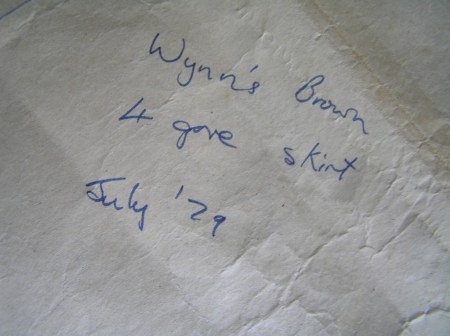 Wynn's Brown
4 gore skirt
July '79